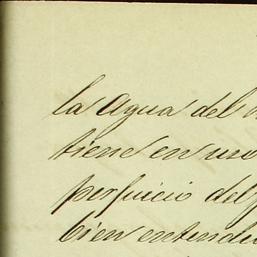 la Agua del
tiene en uso
perjuicio del
bien entendi